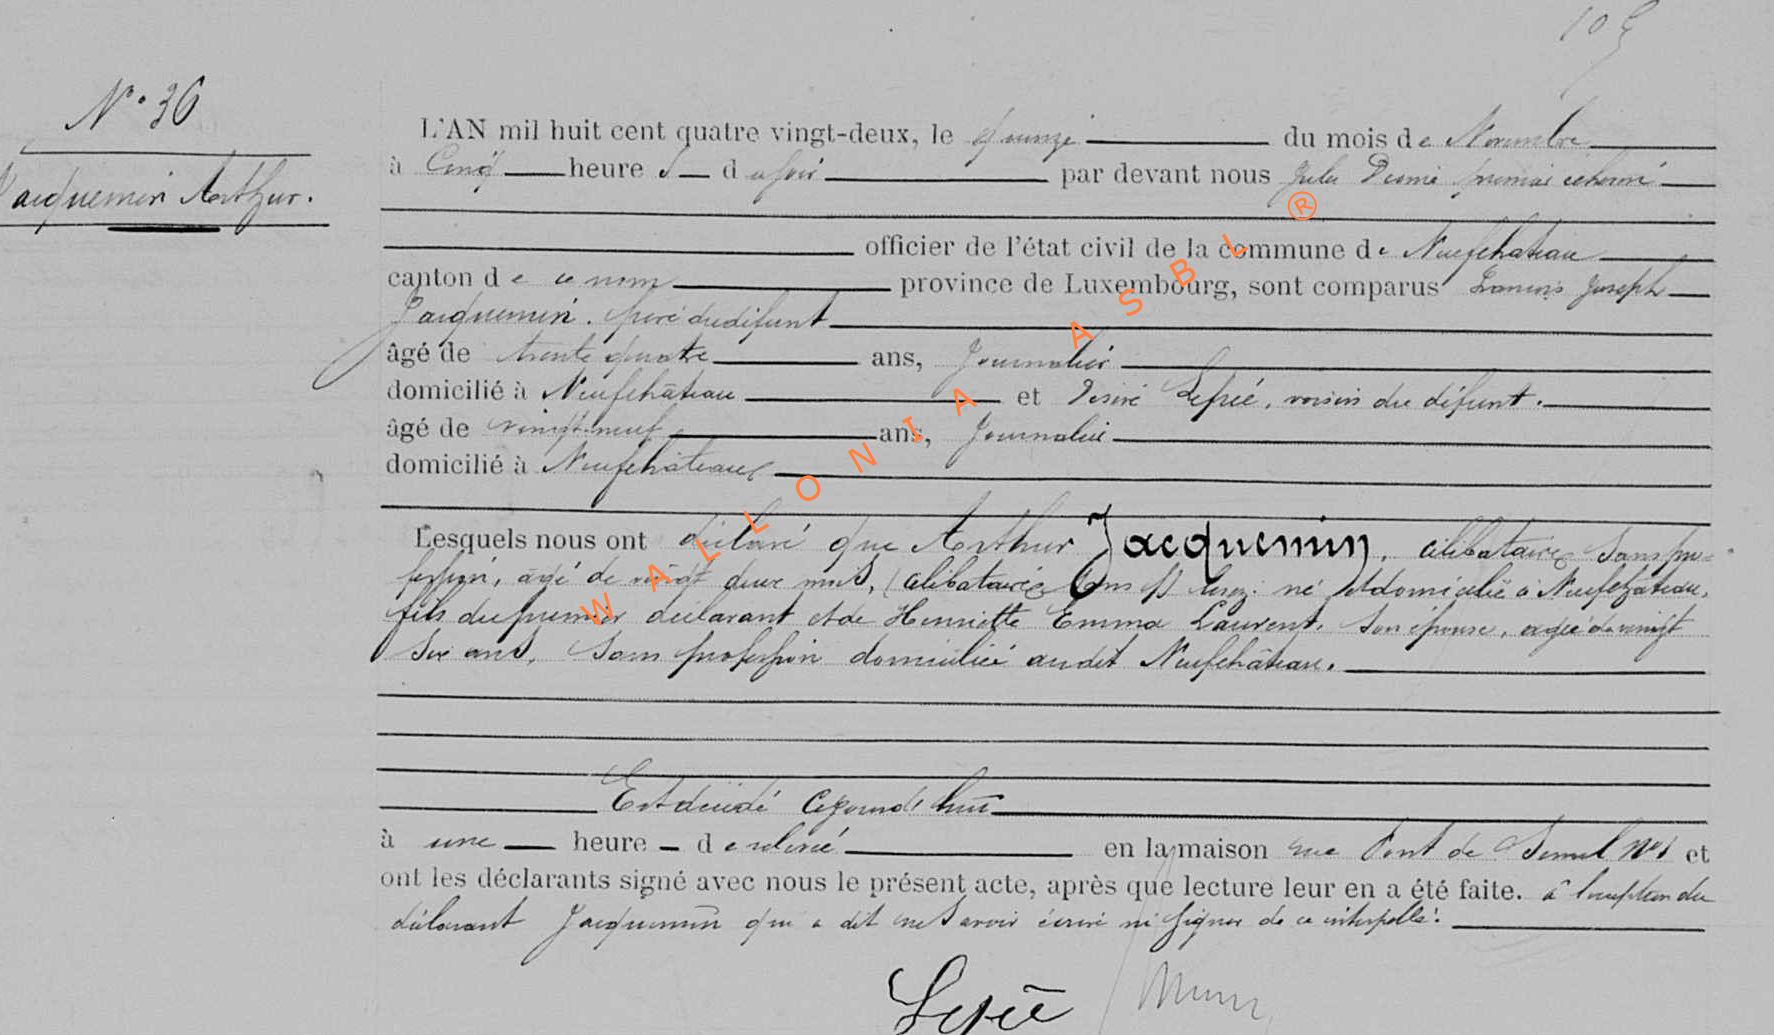 105
N° 36
Jacquemin Arthur.
L'AN mil huit cent quatre vingt-deux, le quinze du mois de Novembre
à Cinq heures du soir par devant nous Jules premier échevin
officier de l'état civil de la commune de Neufchateau
canton de ce nom province de Luxembourg, sont comparus François Joseph
Jacquemin. père du défunt
âgé de trente quatre ans, Journalier
domicilié à Neufchâteau et Désiré Lepié, voisin du défunt.
âgé de vingt-neuf ans, Journalier
domicilié à Neufchâteau
Lesquels nous ont déclaré que Arthur Jacquemin, célibataire, sans pro=
fession, agé de vingt deux mois, célibataire né et domicilié à Neufchâteau,
fils du premier déclarant et de Henriette Emma Laurent, son épouse, agée de vingt
six ans, sans profession domiciliée audit Neufchâteau.
Est décédé cejourd'hui
à une heure de relevée en la maison rue Pont de N° 1 et
ont les déclarants signé avec nous le présent acte, après que lecture leur en a été faite. à l'exception du
déclarant Jacquemin qui a dit ne savoir écrire ni signer de ce interpellé.
Lepié
WALLONIA ASBL ®